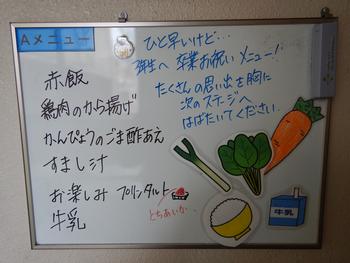 Aメニュー
ひと早いけど…
弥生へ 卒業お祝いメニュー!
たくさんの思い出を胸に
次のステージへ
はばたいてください
赤飯
鶏肉のから揚げ
かんぴょうのごま酢あえ
すまし汁
お楽しみ プリンタルト
とちあいか
牛乳
牛乳